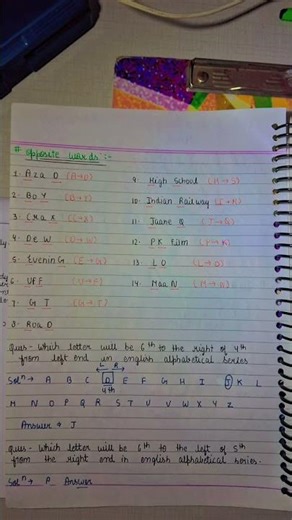 # Opposite words :-
1. Aza D (A→D)
2. Bo Y (B→Y)
3. Cra X (C→X)
4. De W (D→W)
5. Evenin G (E→G)
6. UFF (U→F)
7. G T (G→T)
8. Roa D
9. High School (H→S)
10. Indian Railway (I→R)
11. Juane Q (J→Q)
12. PK Film (P→K)
13. L O (L→O)
14. Maa N (M→N)
Ques- Which letter will be 6th to the right of 4th
from left end in english alphabetical series
L R
Solⁿ→ A B C D E F G H I J K L
4th
M N O P Q R S T U V W X Y Z
Answer → J
Ques- Which letter will be 6th to the left of 5th
from the right end in english alphabetical series.
Solⁿ→ P Answer